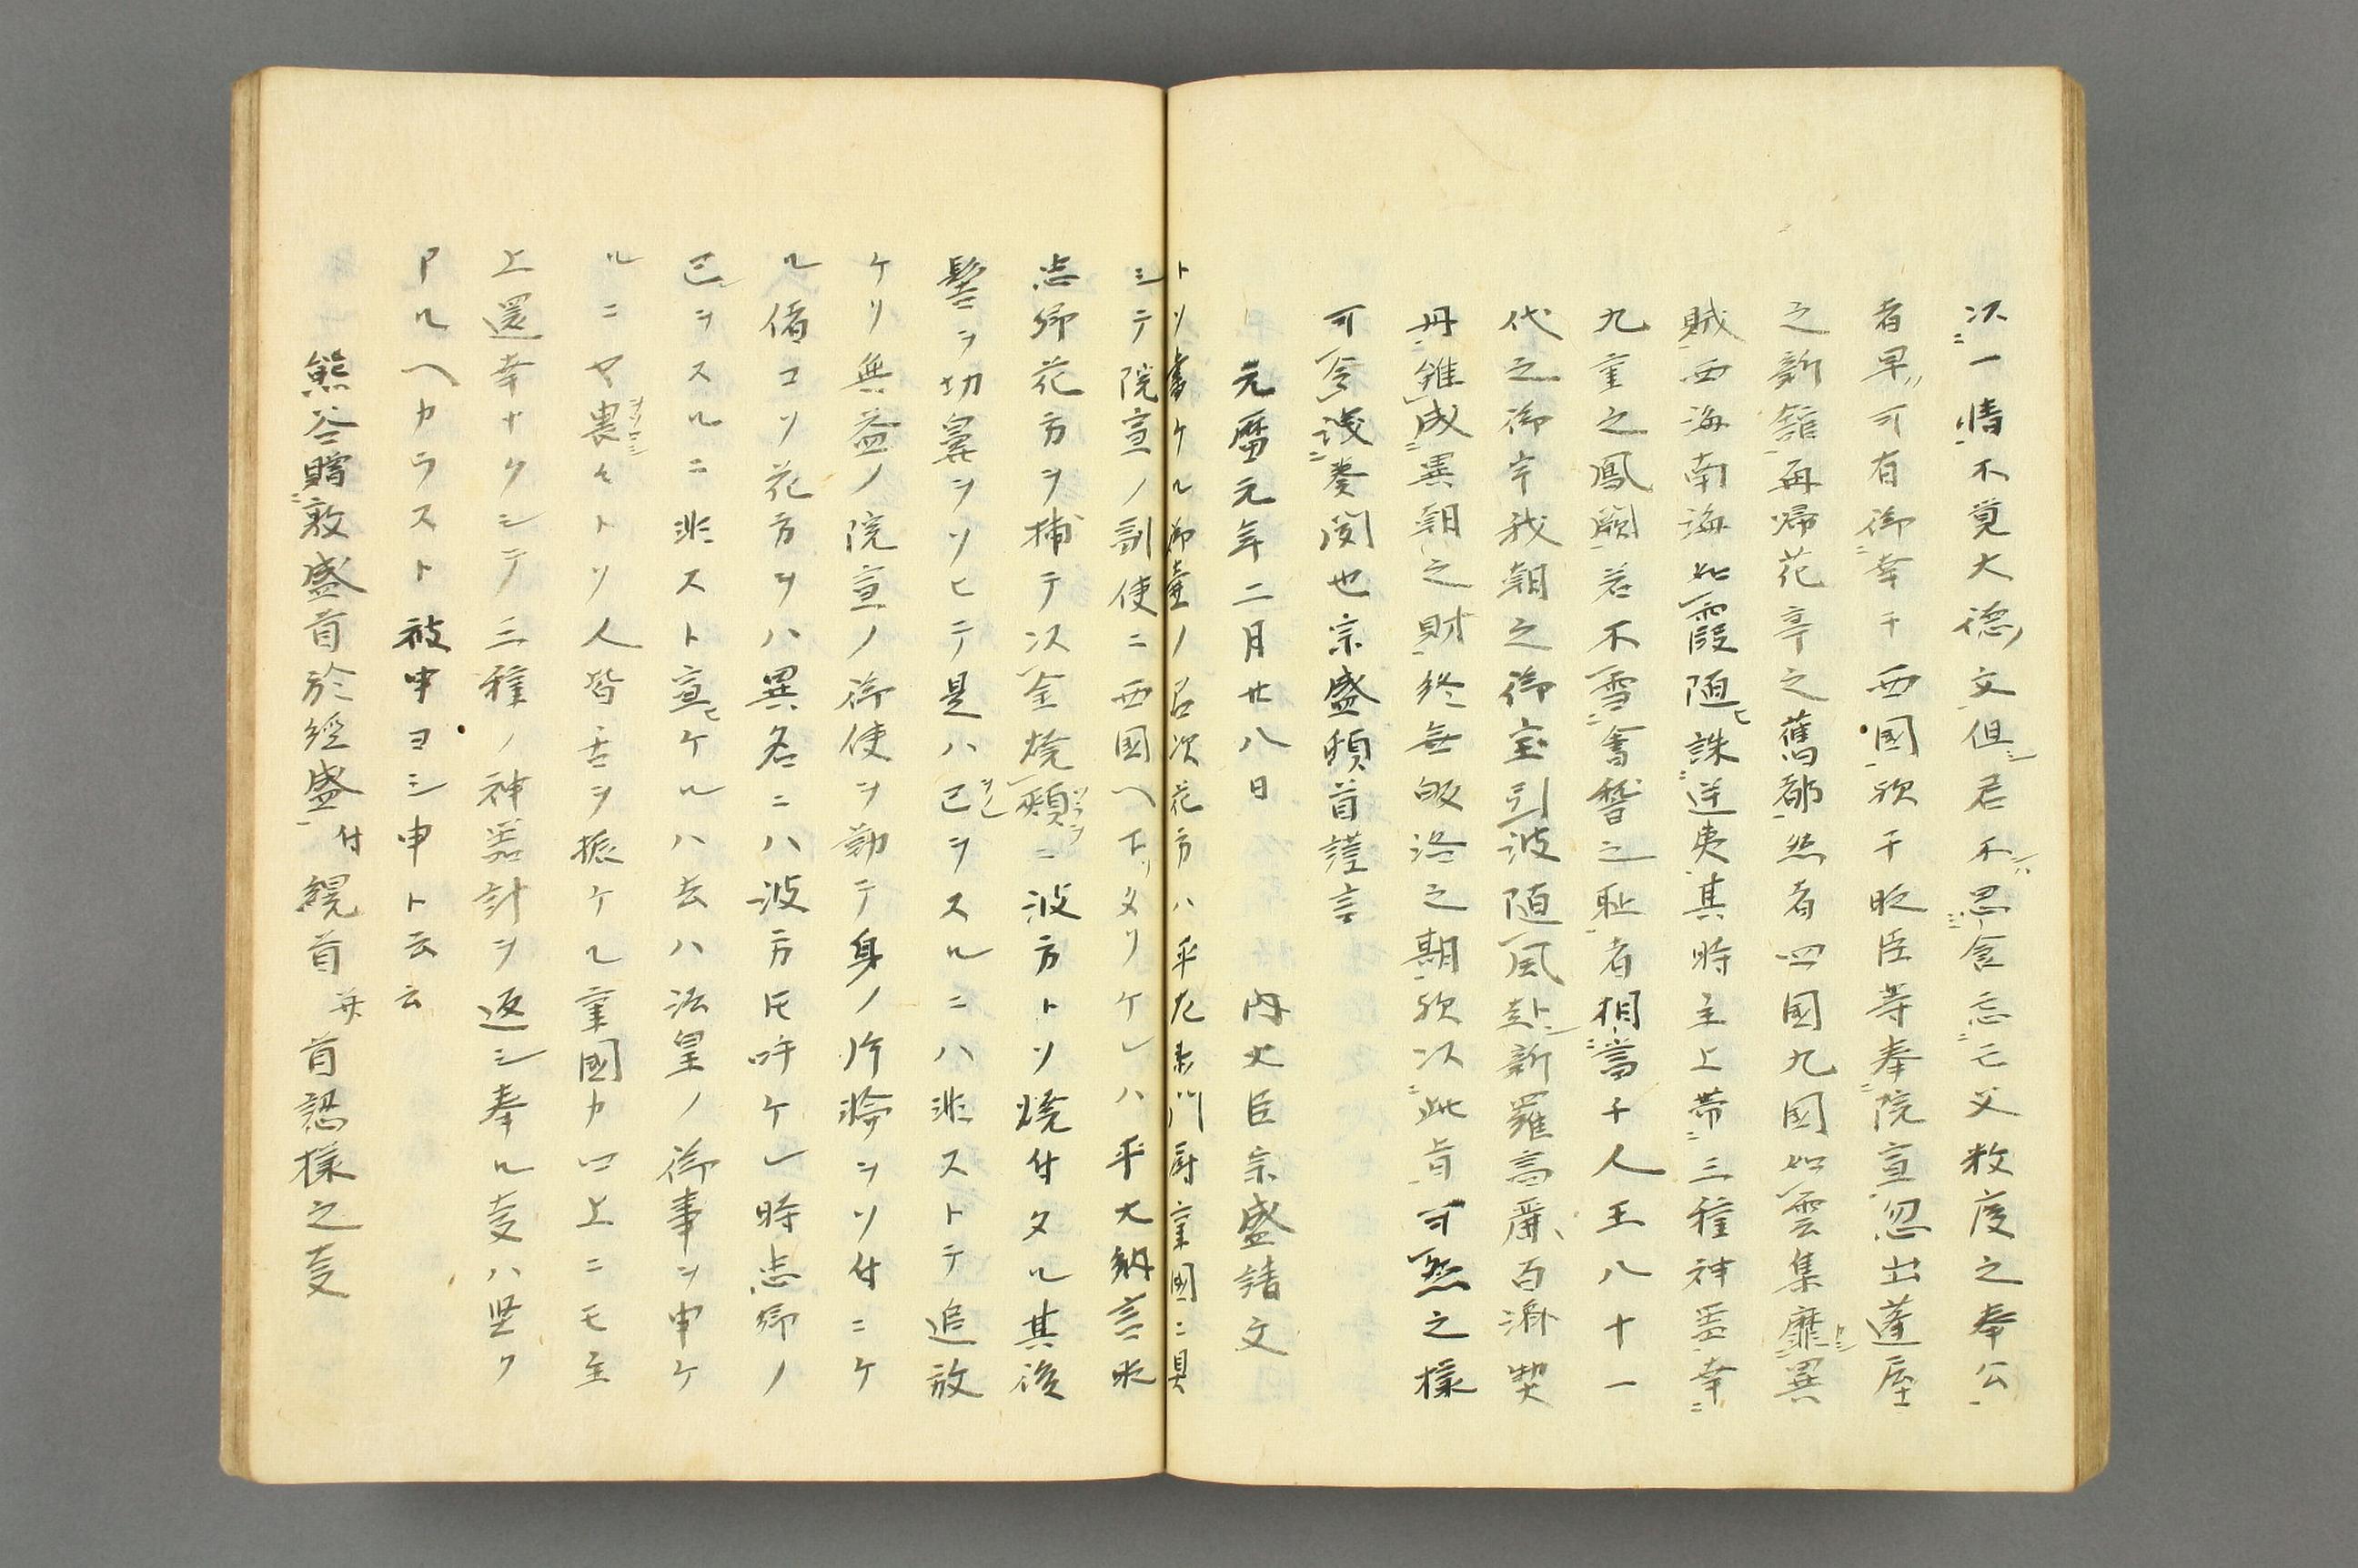 次一情不覚大徳文但君不思含忘亡父数度之奉公
者早可有御幸于西國欤于時臣等奉院宣忽出蓬屋
之新舘再帰花亭之舊都然者四國九國如雲集靡異
賊西海南海如霞随誅逆夷其時主上帯三種神噐幸
九重之鳳闕若不雪會稽之耻者相當于人王八十一
代之御宇我朝之御宝引波随風赴新羅高麗百済契
丹雖成異朝之財終無皈洛之期欤以此旨可然之様
可令洩奏聞也宗盛頓首謹言
元暦元年二月廿八日　内大臣宗盛請文
トソ書ケル御壺ノ召次花方ハ平左衛門尉重國ニ具
シテ院宣ノ副使ニ西國ヘ下タリケレハ平大納言時
忠卿花方ヲ捕テ以金焼頬ニ波方トソ焼付タル其後
髻ヲ切鼻ヲソヒテ是ハ己ヲスルニハ非ストテ追放
ケリ無益ノ院宣ノ御使ヲ勤テ身ノ片瘢ヲソ付ニケ
ル偖コソ花方ヲハ異名ニハ波方トモ呼ケレ時忠卿ノ
己ヲスルニ非スト宣ケルハ去ハ法皇ノ御事ヲ申ケ
ルニヤ裏々トソ人皆舌ヲ振ケル重國カ口上ニモ主
上還幸ナクシテ三種ノ神噐計ヲ返シ奉ル叓ハ堅ク
アルヘカラスト被申ヨシ申ト云云
熊谷贈敦盛首於經盛付緄首并首惣様之叓